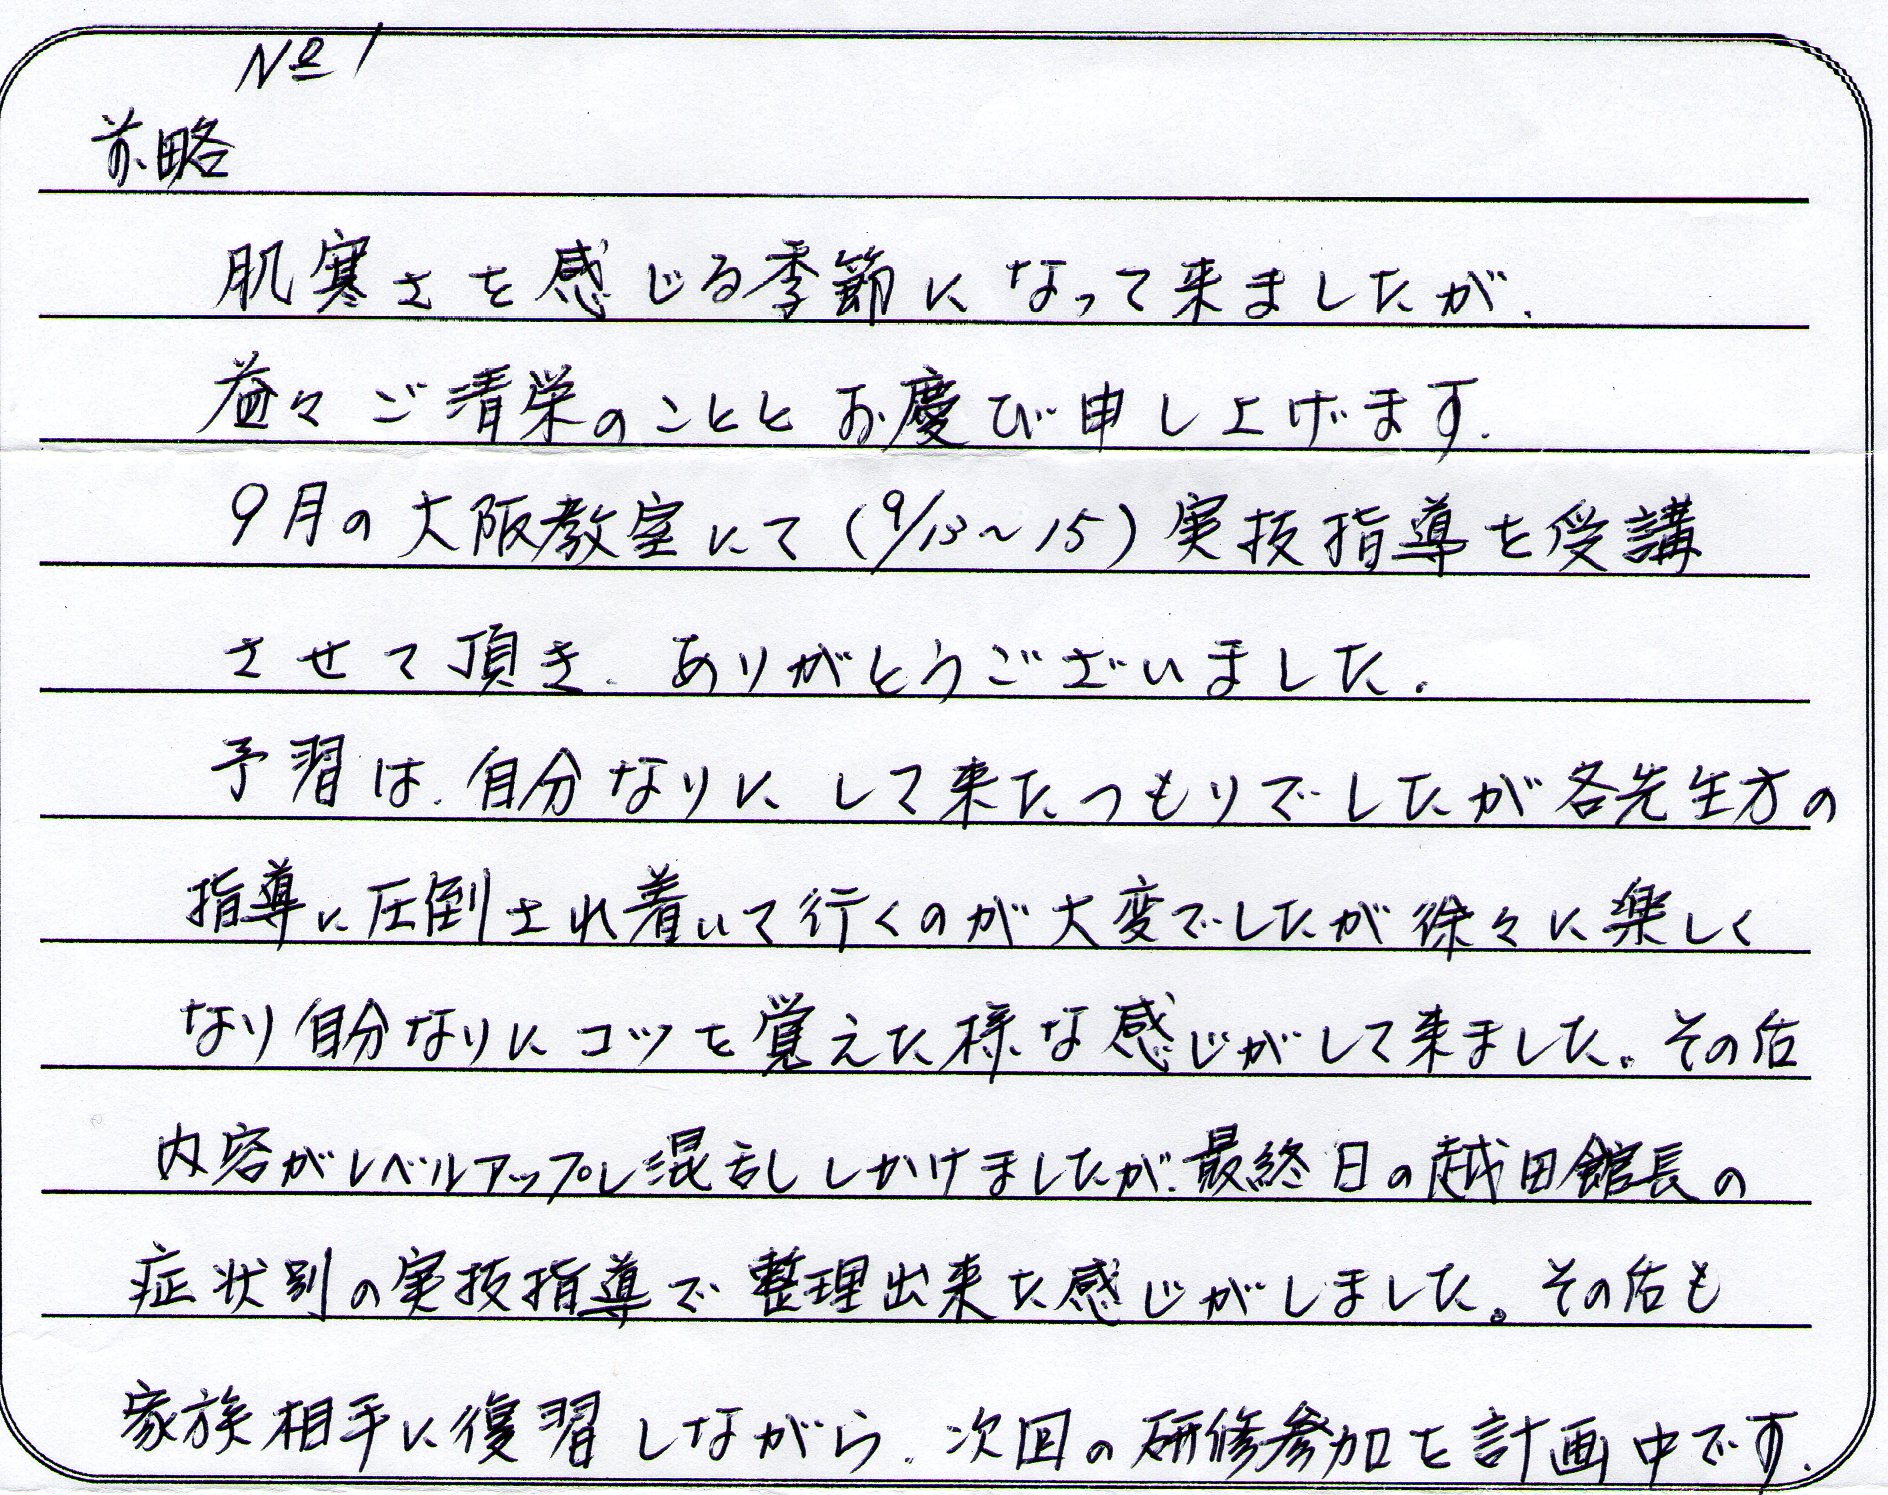 №1
前略
肌寒さを感じる季節になって来ましたが、
益々ご清栄のこととお慶び申し上げます。
9月の大阪教室にて(9/13～15)実技指導を受講
させて頂き、ありがとうございました。
予習は、自分なりにして来たつもりでしたが各先生方の
指導に圧倒され着いて行くのが大変でしたが徐々に楽しく
なり自分なりにコツを覚えた様な感じがして来ました。その后
内容がレベルアップし混乱ししかけましたが、最終日の越田館長の
症状別の実技指導で整理出来た感じがしました。その后も
家族相手に復習しながら、次回の研修参加を計画中です。